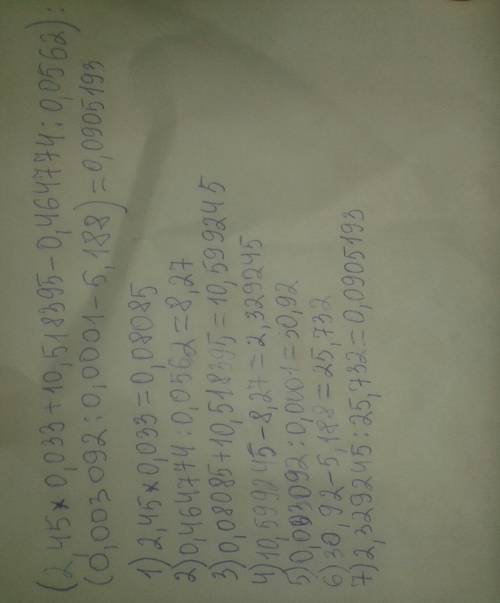 (2,45×0,033+10,518395-0,464774:0,0562):
(0,003092:0,0001-5,188)=0,0905193
1)2,45×0,033=0,08085
2)0,464774:0,0562=8,27
3)0,08085+10,518395=10,599245
4)10,599245-8,27=2,329245
5)0,003092:0,0001=30,92
6)30,92-5,188=25,732
7)2,329245:25,732=0,0905193